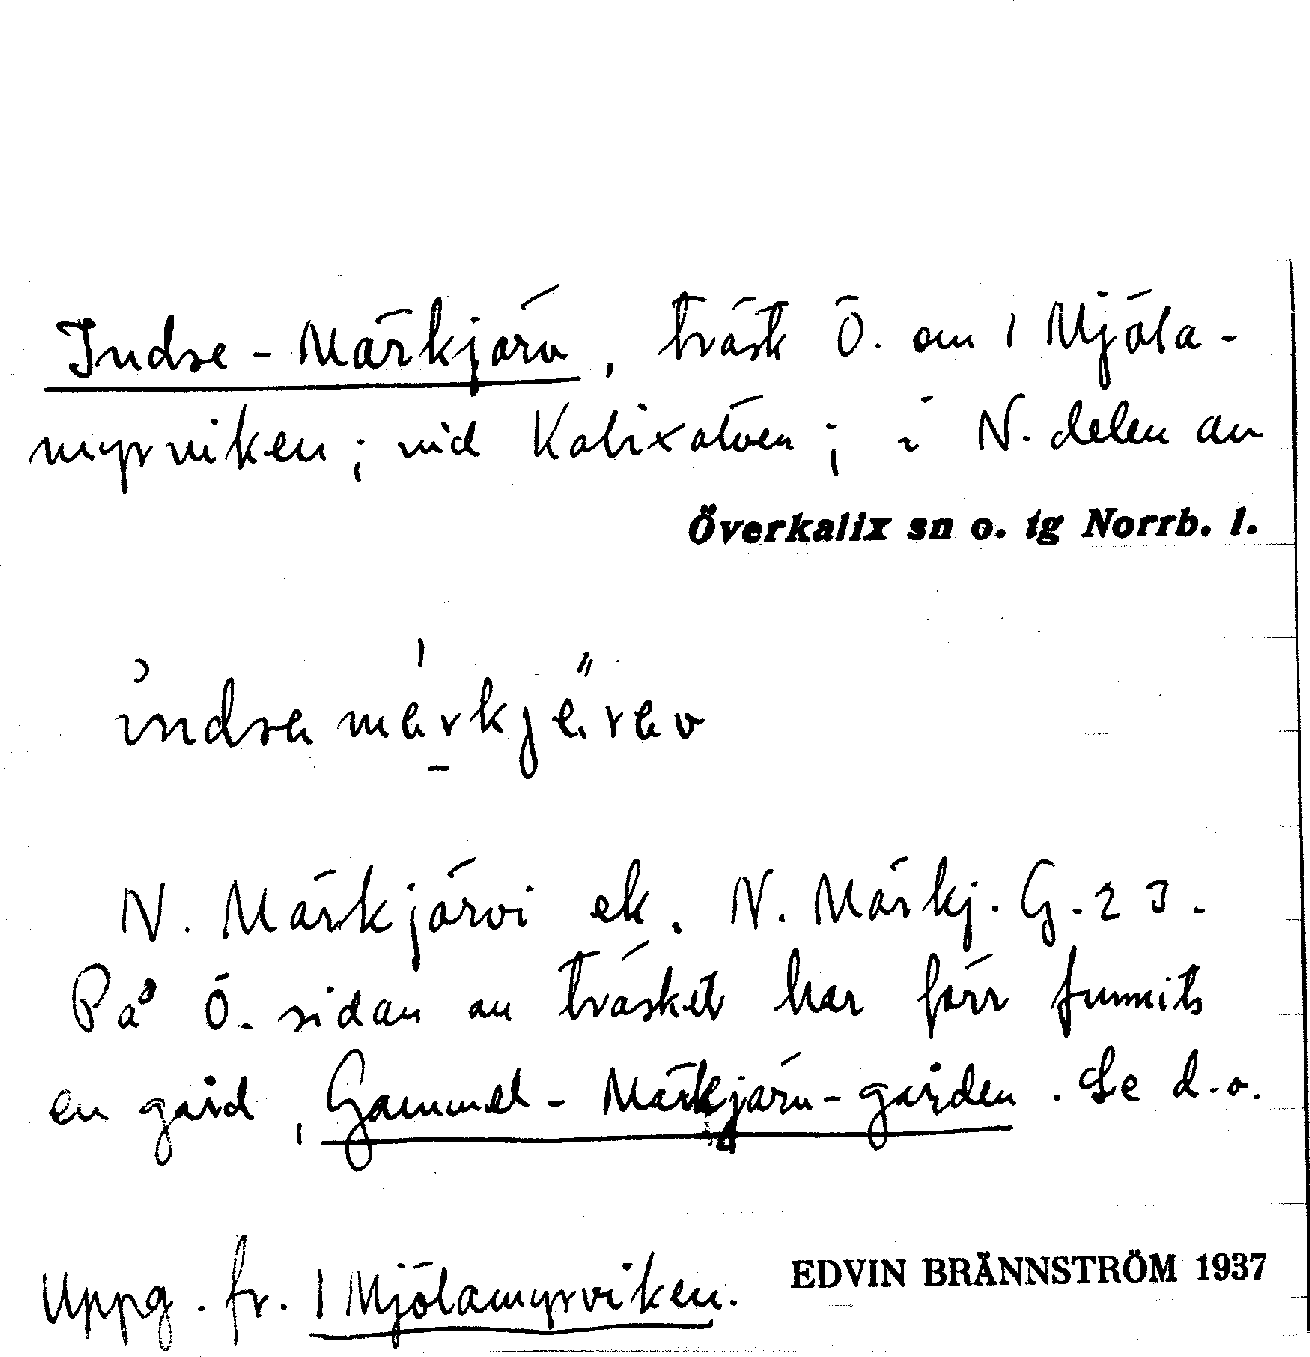 Indre - Märkjärv, träsk Ö. om 1 Mjöla-
myrviken; vid Kalixälven; i N. delen av
Överkalix sn o. tg Norrb. l.
N. Märkjärvi ek. N. Märkj. G. 23.
På Ö. sidan av träsket har förr funnits
en gård, Gammel - Märkjärv - gården. Se d.o.
Uppg. fr. 1 Mjölamyrviken.
EDVIN BRÄNNSTRÖM 1937